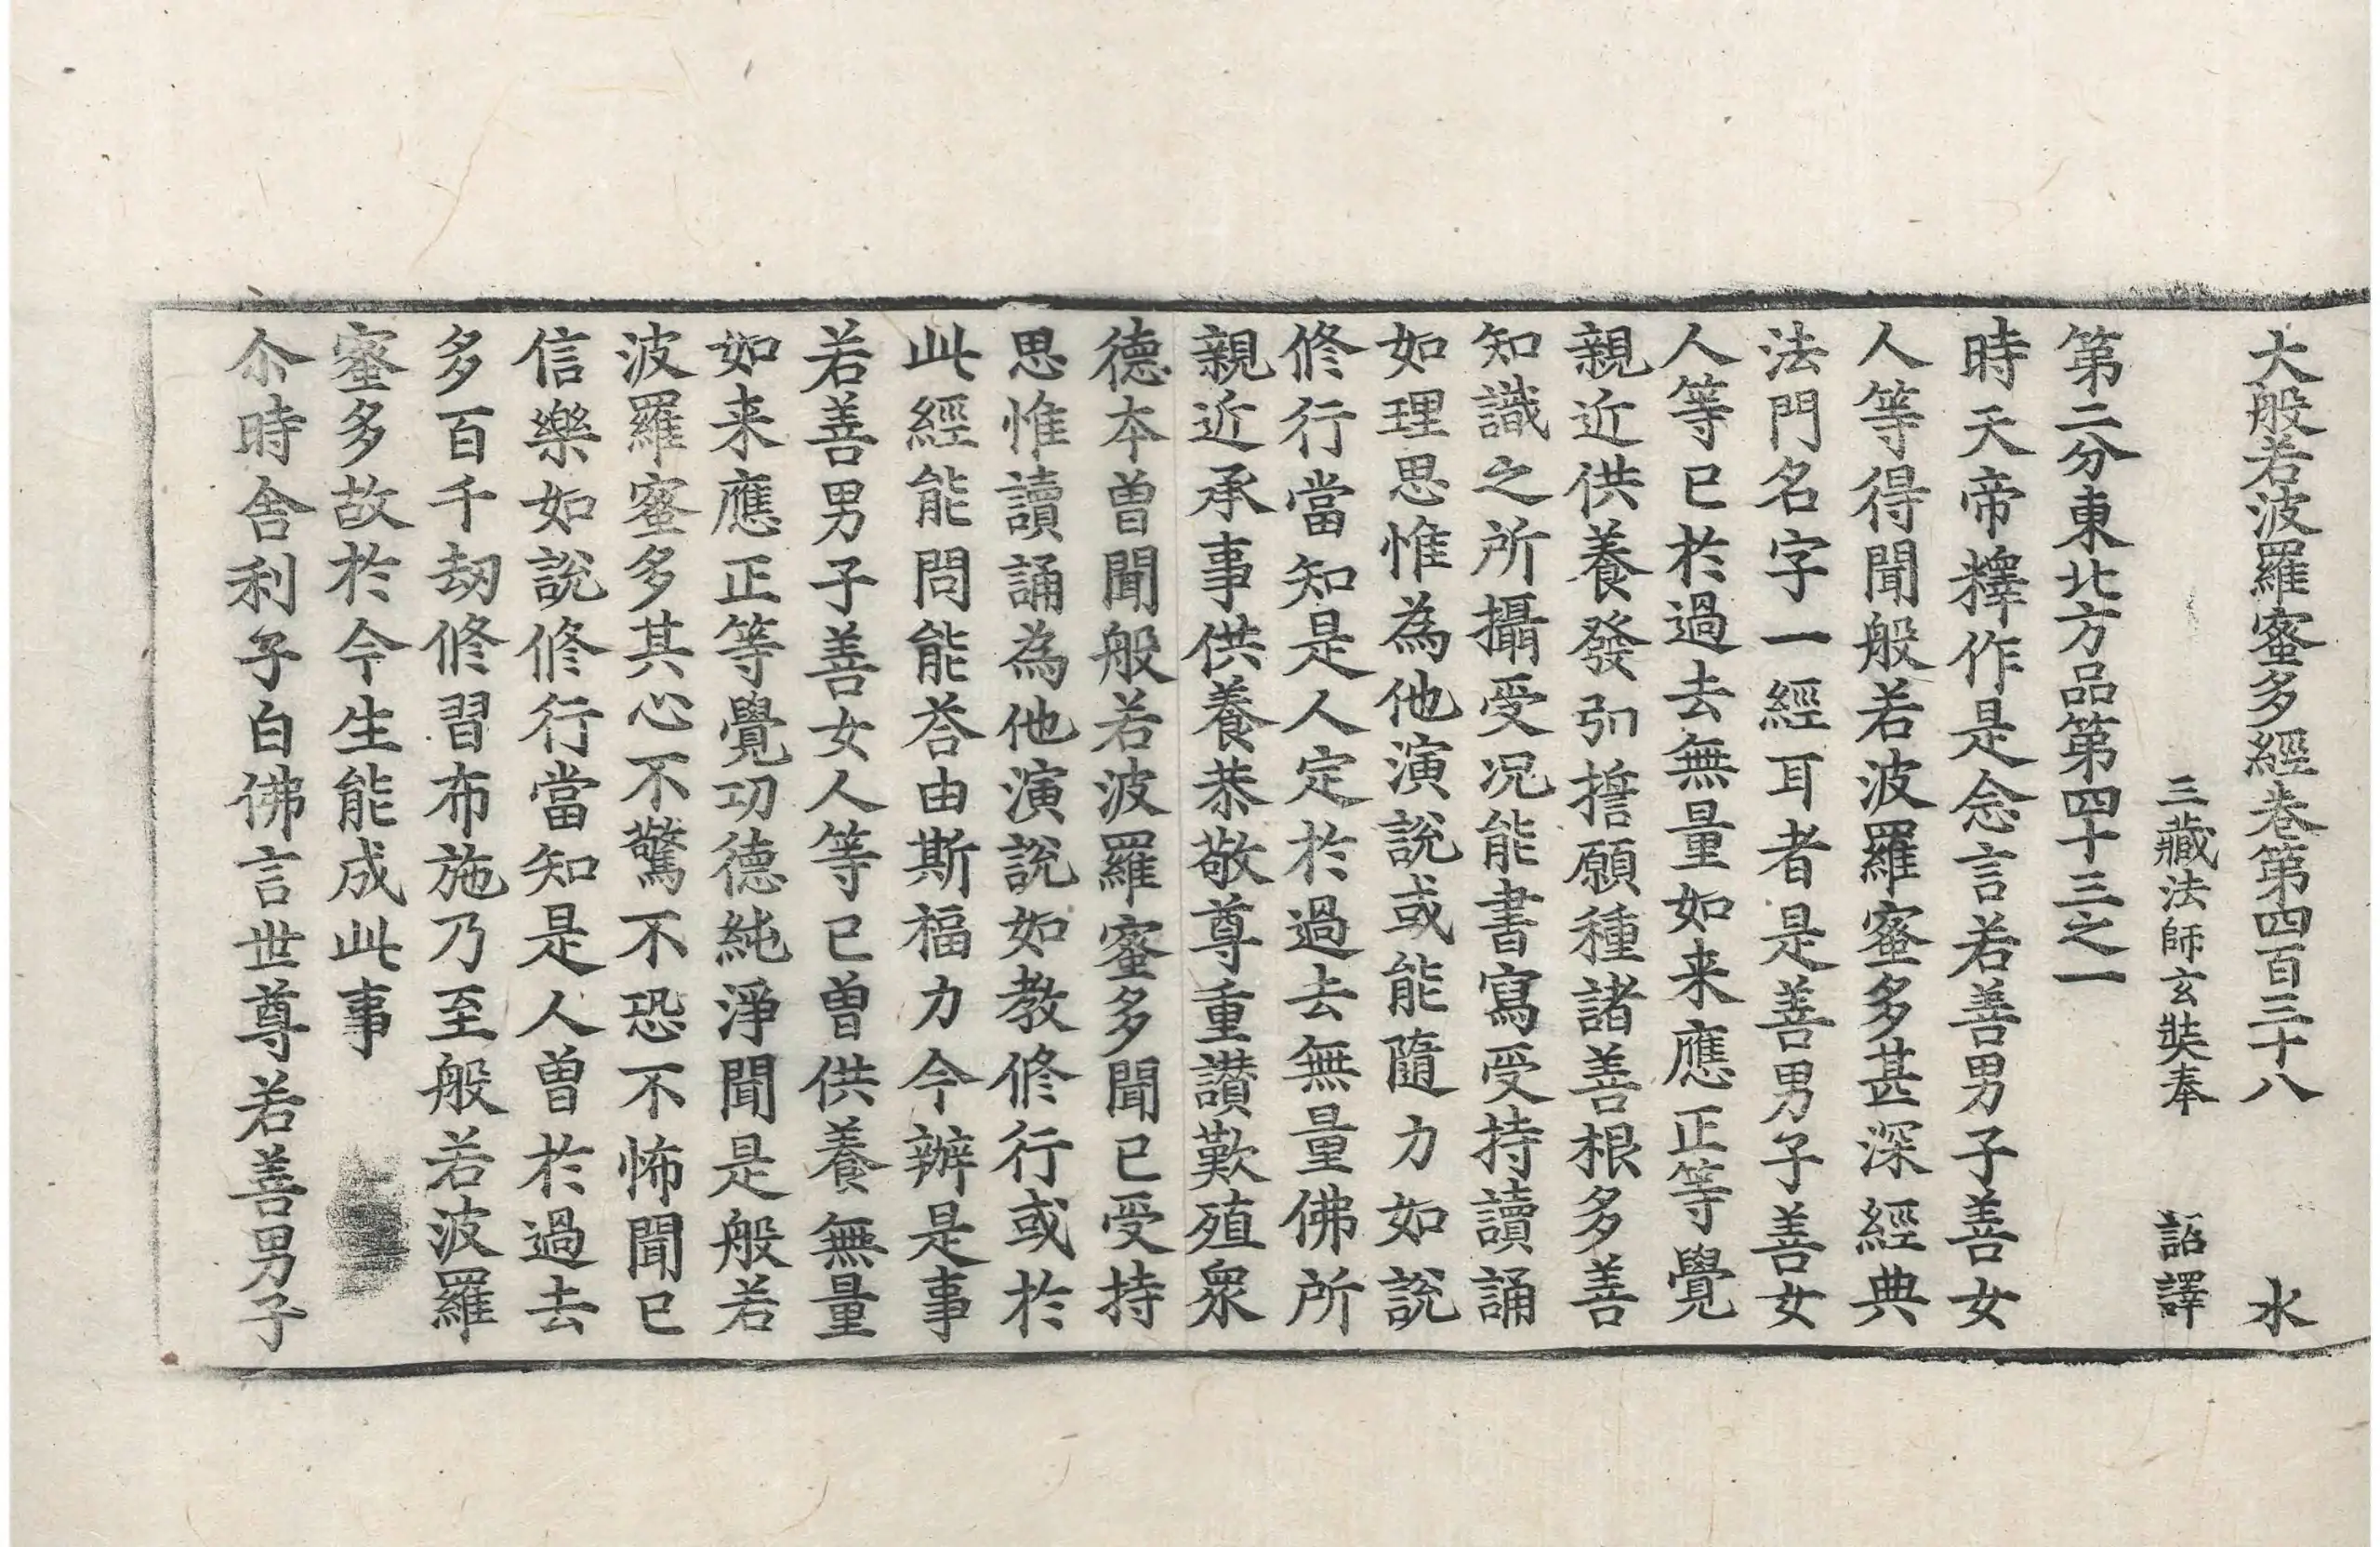 大般若波羅蜜多經卷第四百三十八 水
三藏法師玄奘奉 詔譯
第二分東北方品第四十三之一
時天帝釋作是念言若善男子善女
人等得聞般若波羅蜜多甚深經典
法門名字一經耳者是善男子善女
人等已於過去無量如来應正等覺
親近供養發弘誓願種諸善根多善
知識之所攝受况能書寫受持讀誦
如理思惟為他演說或能隨力如說
修行當知是人定於過去無量佛所
親近承事供養恭敬尊重讚歎殖衆
德本曾聞般若波羅蜜多聞已受持
思惟讀誦為他演說如教修行或於
此經能問能荅由斯福力今辦是事
若善男子善女人等已曾供養無量
如来應正等覺功德純淨聞是般若
波羅蜜多其心不驚不恐不怖聞已
信樂如說修行當知是人曾於過去
多百千劫修習布施乃至般若波羅
蜜多故於今生能成此事
尒時舍利子白佛言世尊若善男子